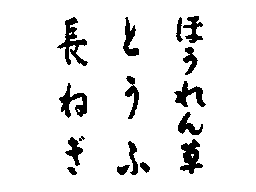 ほうれん草
とうふ
長ねぎ